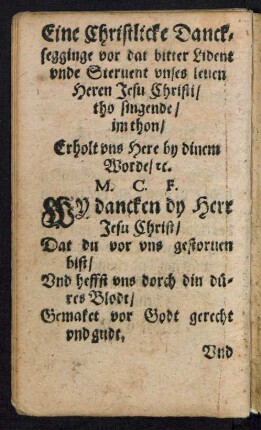 Eine Christlicke Danck-
segginge vor dat bitter Lident
vnde Steruent vnses leuen
Heren Jesu Christi/
tho singende/
im thon/
Erholt vns Here by dinem
Worde/ꝛc.
M. C. F.
WY dancken dy Herr
Jesu Christ/
Dat du vor vns gestoruen
bist/
Vnd heffst vns dorch din dü-
res Blodt/
Gemaket vor Godt gerecht
vnd gudt,
Vnd